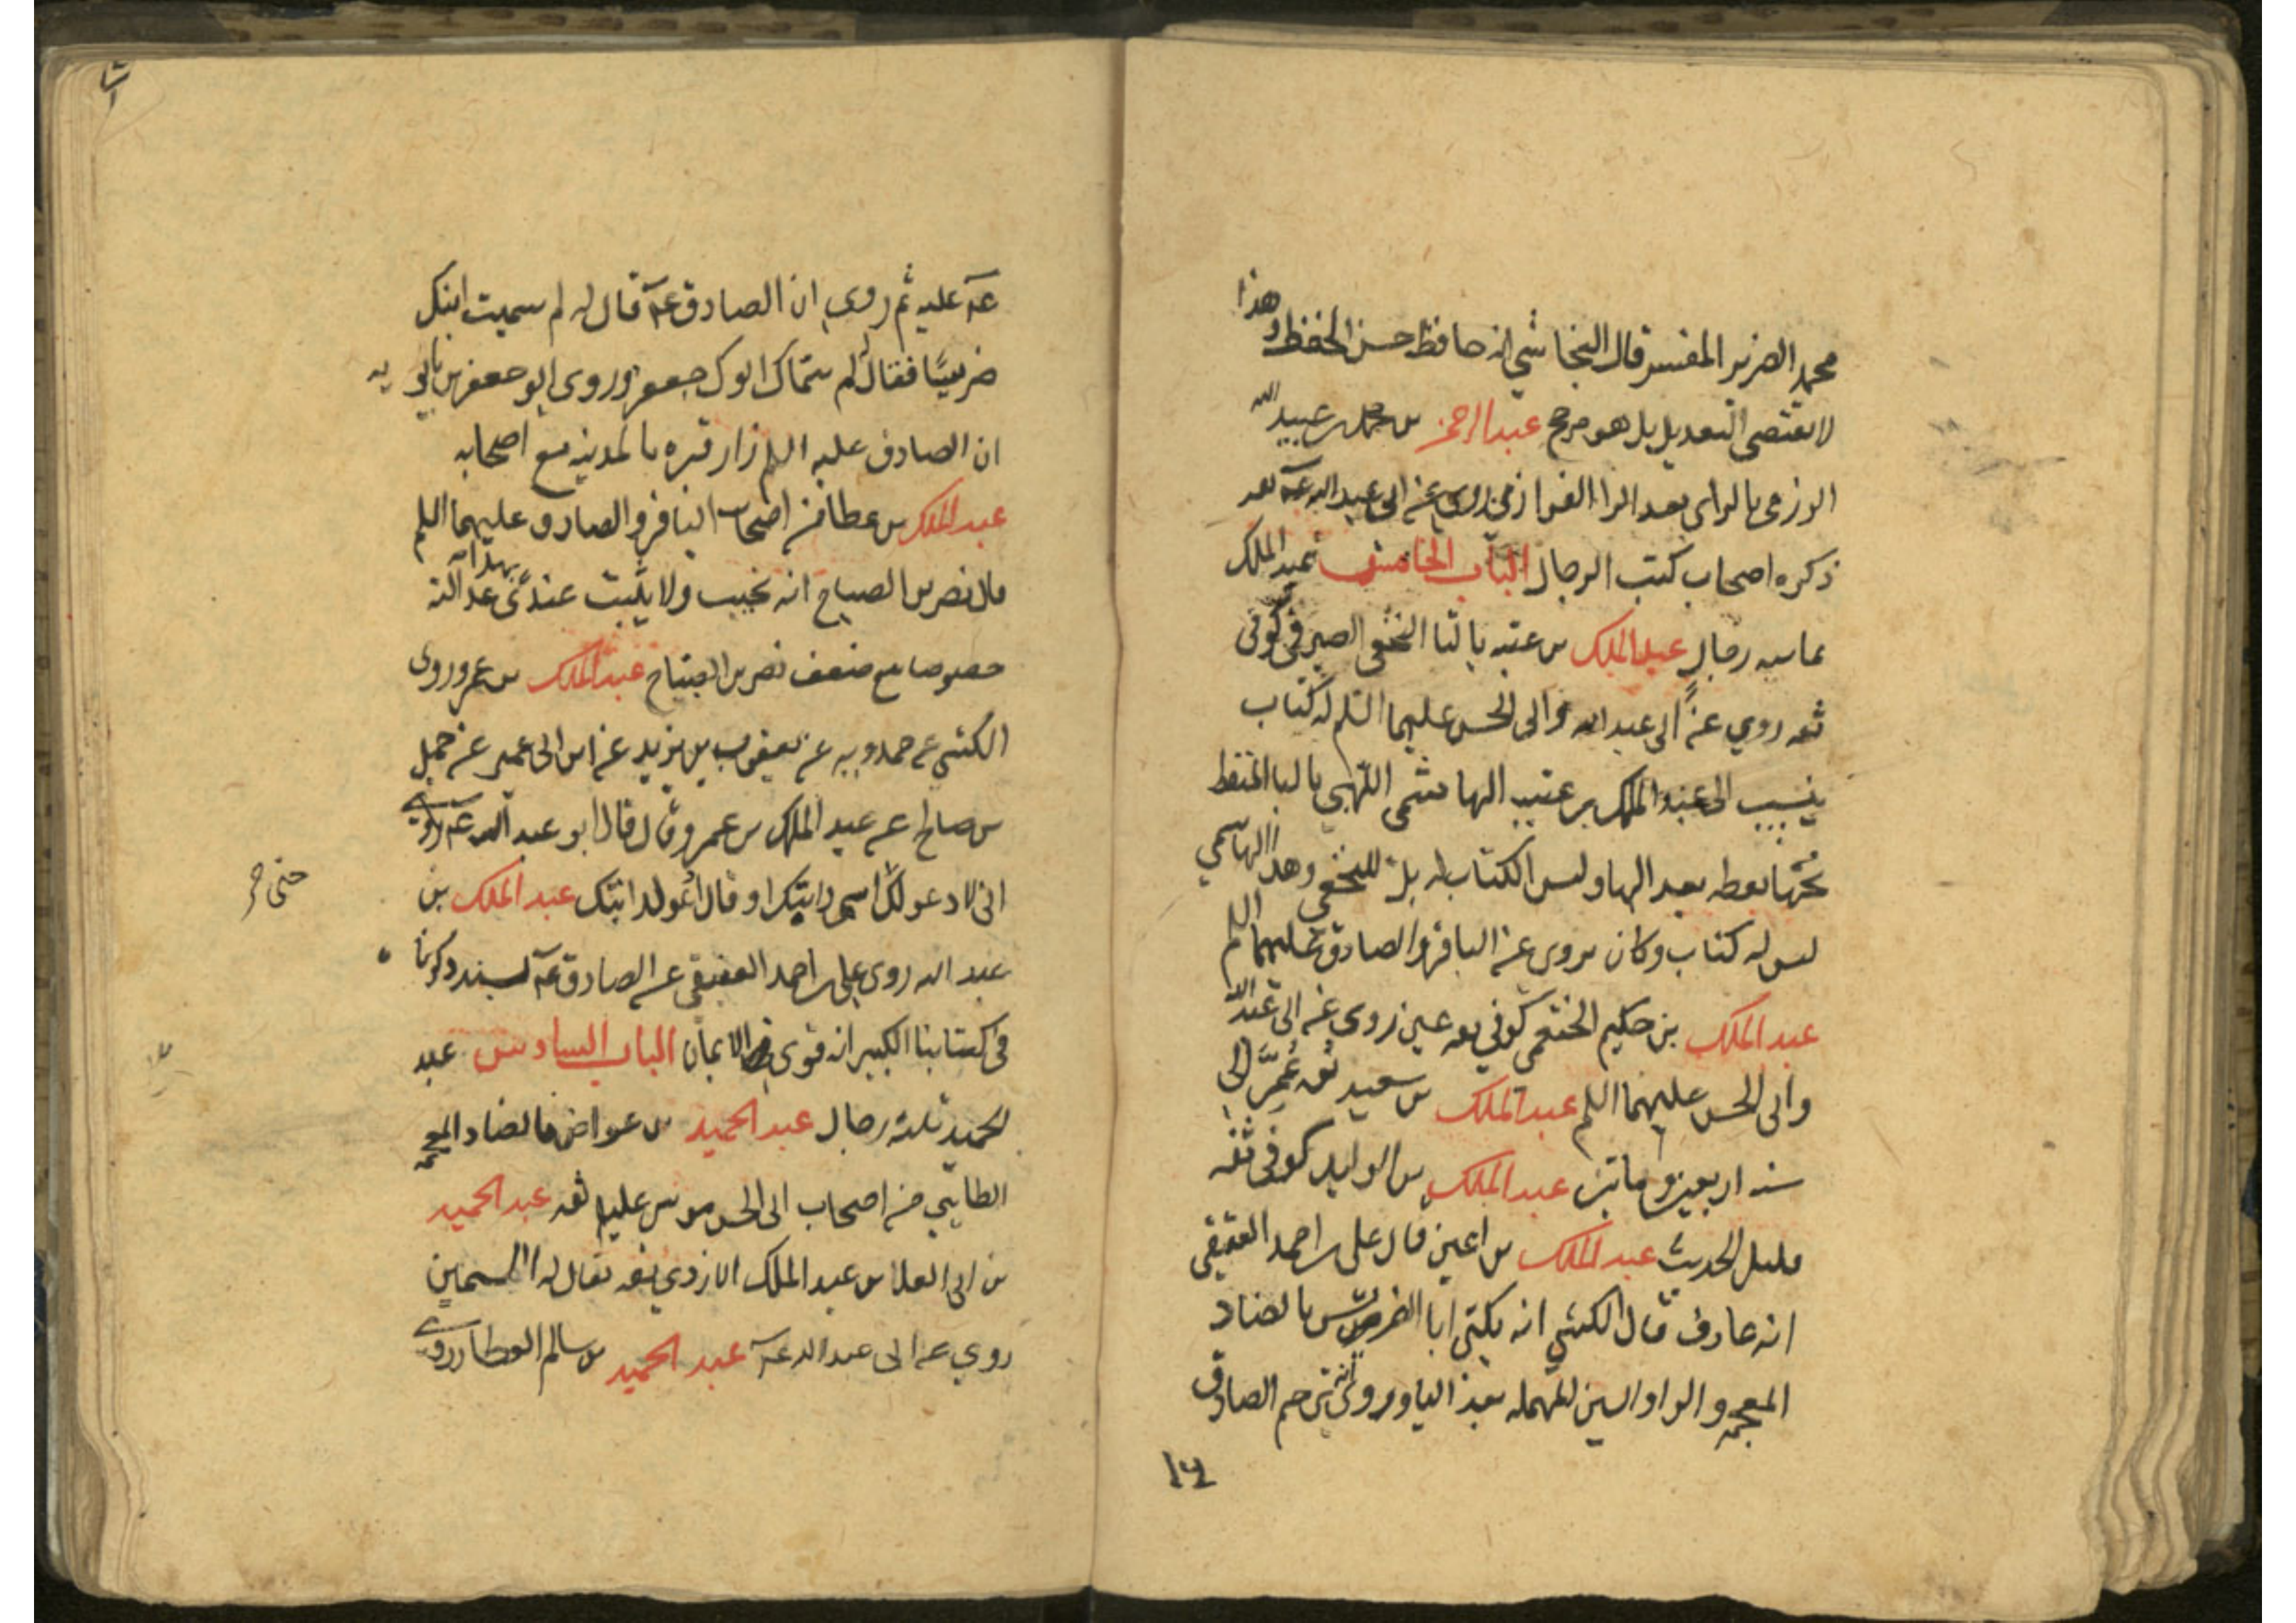 محمد الضرير المفسر قال النجاشي انه حافظ حسن الحفظ وهذا
لا يقتضي التعديل بل هو مرجح عبد الرحمن بن محمد بن عبيد الله
الرزمي بالزاي بعد الراء الفزاري روى عن ابي عبد الله عه ثقه
ذكره اصحاب كتب الرجال الباب الخامس عبد الملك
ثمانيه رجال عبد الملك بن عتبه بالتا النخعي الصيرفي كوفي
ثقه روي عن ابي عبد الله وابي الحسن عليهما السلم له كتاب
ينسب الى عبد الملك بن عتبه الهاشمي اللهبي بالبا المنقط
تحتها نقطه بعد الها وليس الكتاب له بل للنخعي وهذا الهاشمي
ليس له كتاب وكان يروي عن الباقر والصادق عليهما السلم
عبد الملك بن حكيم الخثعمي كوفي ثقه عين روى عن ابي عبد الله
وابي الحسن عليهما السلم عبد الملك بن سعيد ثقه عمر الى
سنه اربعين وماتين عبد الملك بن الوليد كوفي ثقه
قليل الحديث عبد الملك بن اعين قال علي بن احمد العقيقي
انه عارف قال الكشي انه يكنى ابا الضريس بالضاد
المعجمه والرا والسين المهمله بعد اليا وروى انه ترحم الصادق
١٤
عه عليه ثم روي ان الصادق عه قال له لم سميت ابنك
ضريسا فقال له لم سماك ابوك جعفر وروى ابو جعفر بن بابويه
ان الصادق عليه السلم زار قبره بالمدينه مع اصحابه
عبد الملك بن عطا من اصحاب الباقر والصادق عليهما السلم
قال نصر بن الصباح انه نجيب ولا يثبت عندي بهذا عدالته
خصوصا مع ضعف نصر بن الصباح عبد الملك بن عمرو روى
الكشي عن حمدويه عن يعقوب بن يزيد عن ابن ابي عمير عن جميل
بن صالح عن عبد الملك بن عمرو قال قال ابو عبد الله عه
اني لادعو لك اسمي دابتك او قال ادعو لدابتك عبد الملك بن
عبد الله روى علي بن احمد العقيقي عن الصادق عه بسند ذكرنا
في كتابنا الكبير انه قوي الايمان الباب السادس عبد
الحميد ثلثه رجال عبد الحميد بن عواض بالضاد المعجمه
الطائي من اصحاب ابي الحسن موسى عليه ثقه عبد الحميد
بن ابي العلا بن عبد الملك الازدي ثقه يقال له السمين
روي عن ابي عبد الله عه عبد الحميد بن سالم العطار روى